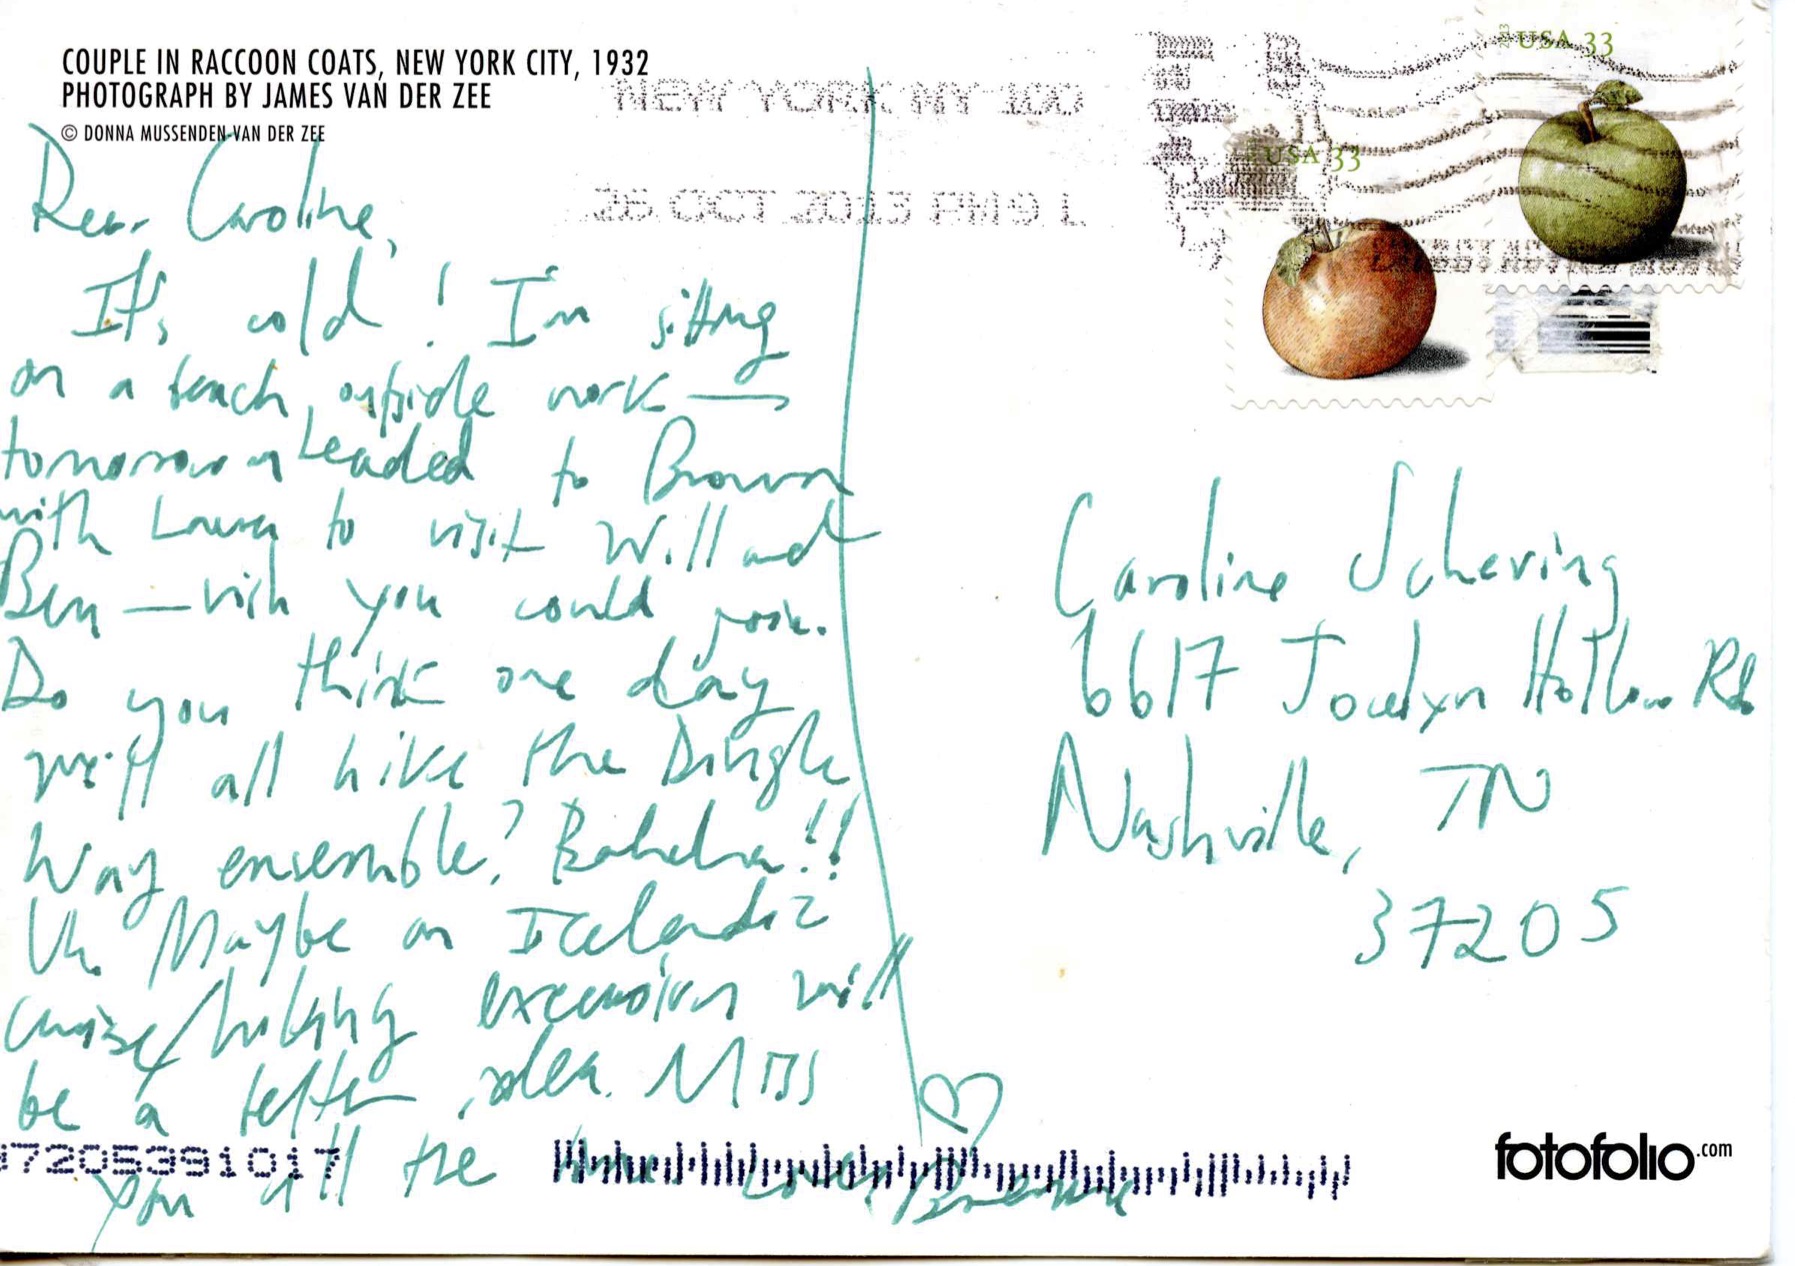 COUPLE IN RACCOON COATS, NEW YORK CITY, 1932
PHOTOGRAPH BY JAMES VAN DER ZEE
© DONNA MUSSENDEN VAN DER ZEE
NEW YORK NY 100
26 OCT 2013 PM 9 L
USA 33
USA 33
Dear Caroline,
It's cold! I'm sitting
on a bench outside work —
tomorrow headed to Brown
with Laura to visit Will and
Ben — wish you could join.
Do you think one day
we'll all hike the Dingle
Way ensemble? Bahaha!!
Uh. Maybe an Icelandic
cruise/hiking excursion will
be a better idea. Miss
you all the time Love,
Caroline Schering
6617 Jocelyn Hollow Rd.
Nashville, TN
37205
37205391017
fotofolio.com